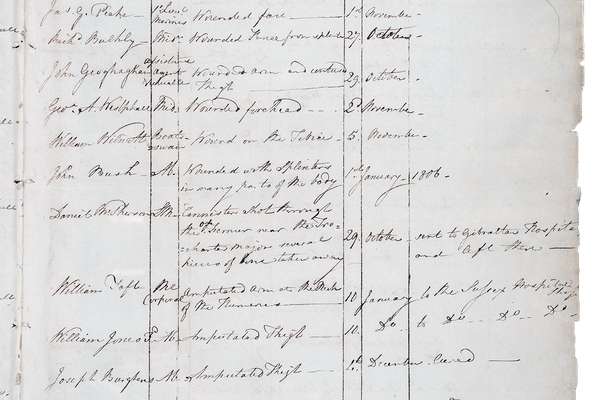 Jas. G. Peake - Lieut Marines Wounded face — 1st November -
Richd. Bulkley - Midn. Wounded from splinter 27. October
John Geoghaghan assistant agent Victualler Wounded Arm and contused
Thigh — 29. October -
Geoe. A. Westphall Mid. Wounded forehead — 2d November -
William Boats-
swain - Wound on the — 5. November -
John Bush - Ab. Wounded with Splinters
in many parts of the body 1st January - 1806 -
Daniel McPherson Ab. Cannister Shot through
the os femur near the Tro-
chanter major several
pieces of bone taken away 29. October - sent to Gibraltar Hospital
and left there —
William Taft corporal Amputated Arm at the Neck
of the Humerus — 10 January - to the Hospital
William Ab - Amputated Thigh — 10. Do - to Do - Do - Do -
Joseph Ab - Amputated Thigh — December - Cured —